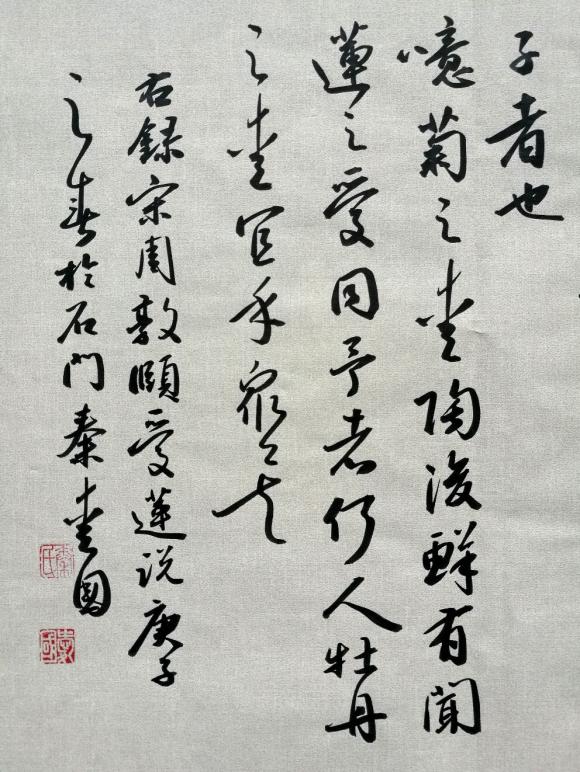 子者也
噫菊之愛陶後鮮有聞
蓮之愛同予者何人牡丹
之愛宜乎衆矣
右録宋周敦頤愛蓮説庚子
之春於石門秦愛國